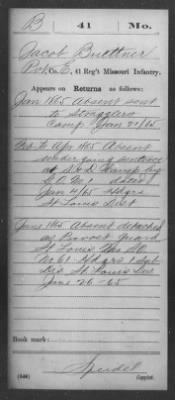 B | 41 | Mo.
Jacob Buettner
Pvt, Co. E, 41 Reg't Missouri Infantry.
Appears on Returns as follows:
Jan 1865 Absent sent
to Stragglers
Camp Jan 21/65
Feb & Apr 1865 Absent
undergoing sentence
at by
G.C.M. dated
Jan 4/65 Hdqrs
St Louis Dist
June 1865 Absent detached
as Provost Guard
St Louis Mo S.O.
No 61 Hdqrs 1 Sub
Dis St Louis Dis
June 26-65
Book mark:
Speidel
(546) Copyist.